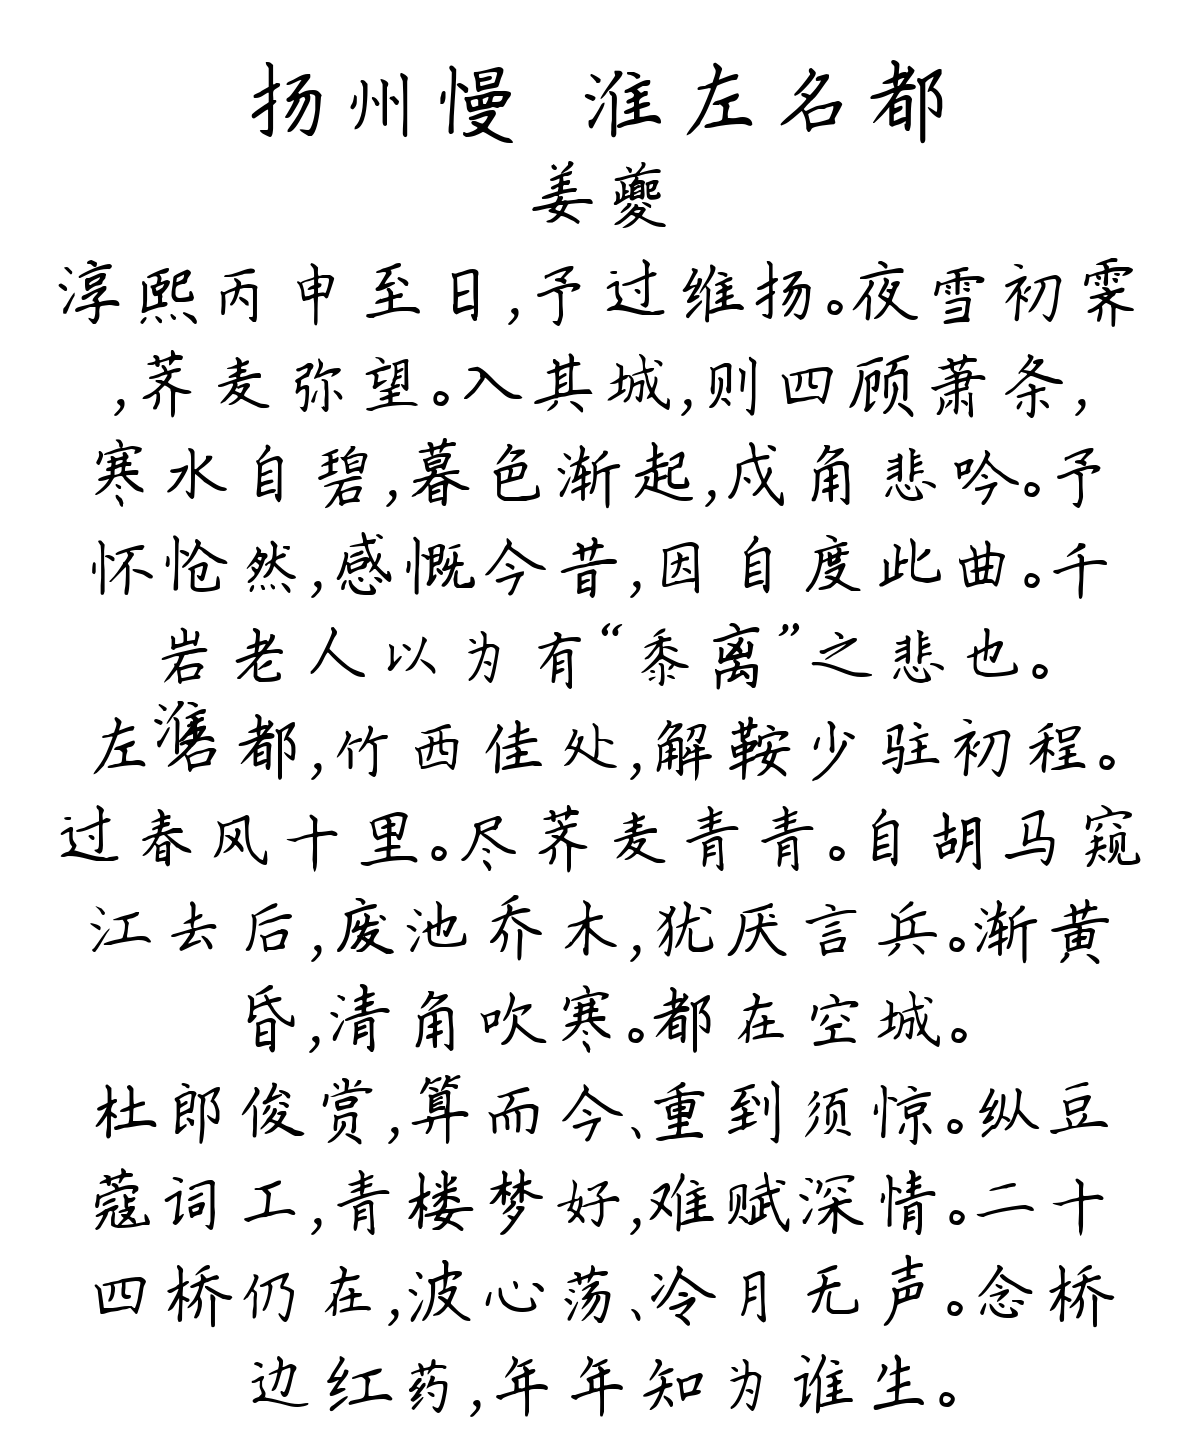 扬州慢 淮左名都
姜夔
淳熙丙申至日,予过维扬。夜雪初霁
,荠麦弥望。入其城,则四顾萧条,
寒水自碧,暮色渐起,戍角悲吟。予
怀怆然,感慨今昔,因自度此曲。千
岩老人以为有“黍离”之悲也。
左淮名都,竹西佳处,解鞍少驻初程。
过春风十里。尽荠麦青青。自胡马窥
江去后,废池乔木,犹厌言兵。渐黄
昏,清角吹寒。都在空城。
杜郎俊赏,算而今、重到须惊。纵豆
蔻词工,青楼梦好,难赋深情。二十
四桥仍在,波心荡、冷月无声。念桥
边红药,年年知为谁生。